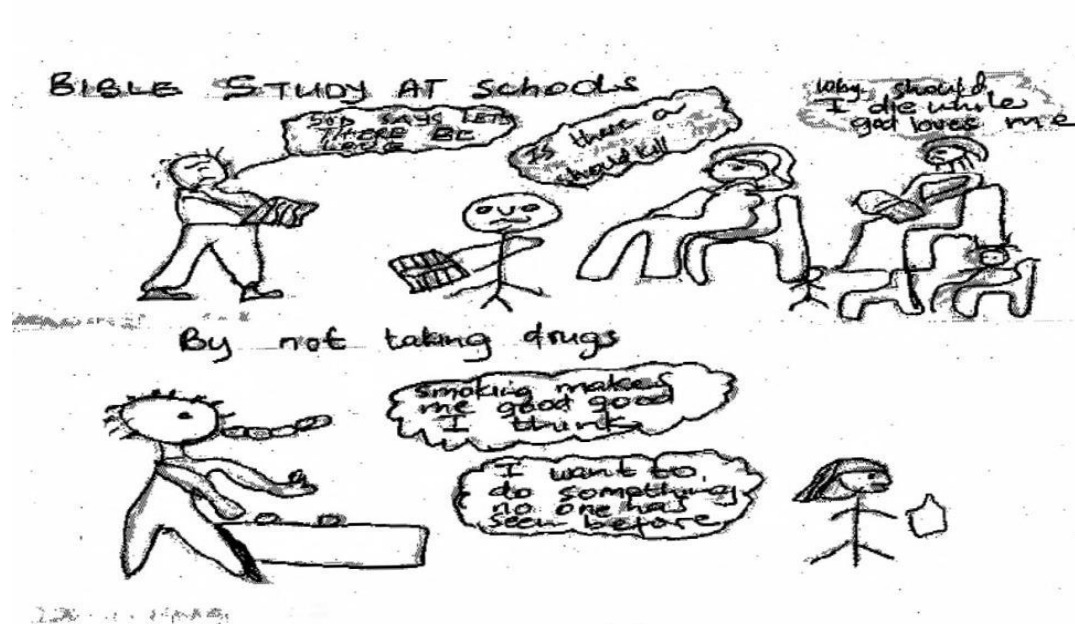 BIBLE STUDY AT schools
GOD SAYS LETS
THERE BE
Is there a
should kill
Why should
I die while
god loves me
By not taking drugs
smoking makes
me good good
I think
I want to,
do something
no one has
seen before